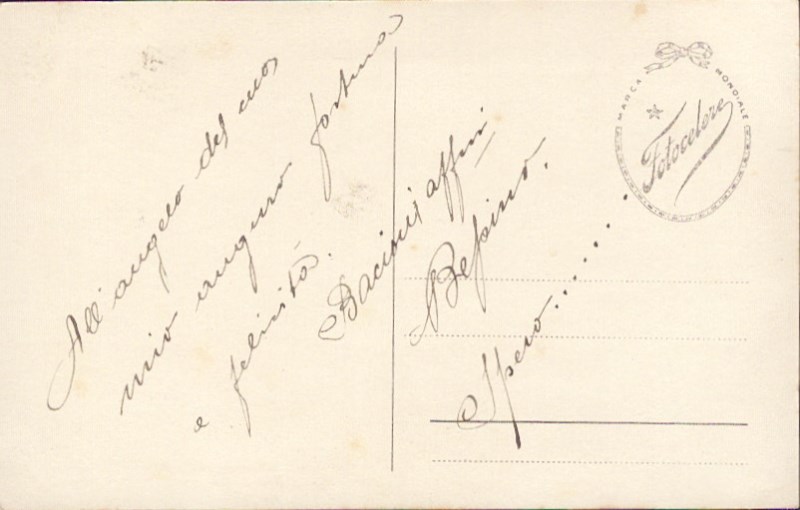 All'angelo del cuor
mio auguro fortuna
e felicità.
Bacioni affini
Beppino.
Spero.........
MARCA MONDIALE
Fotocelere